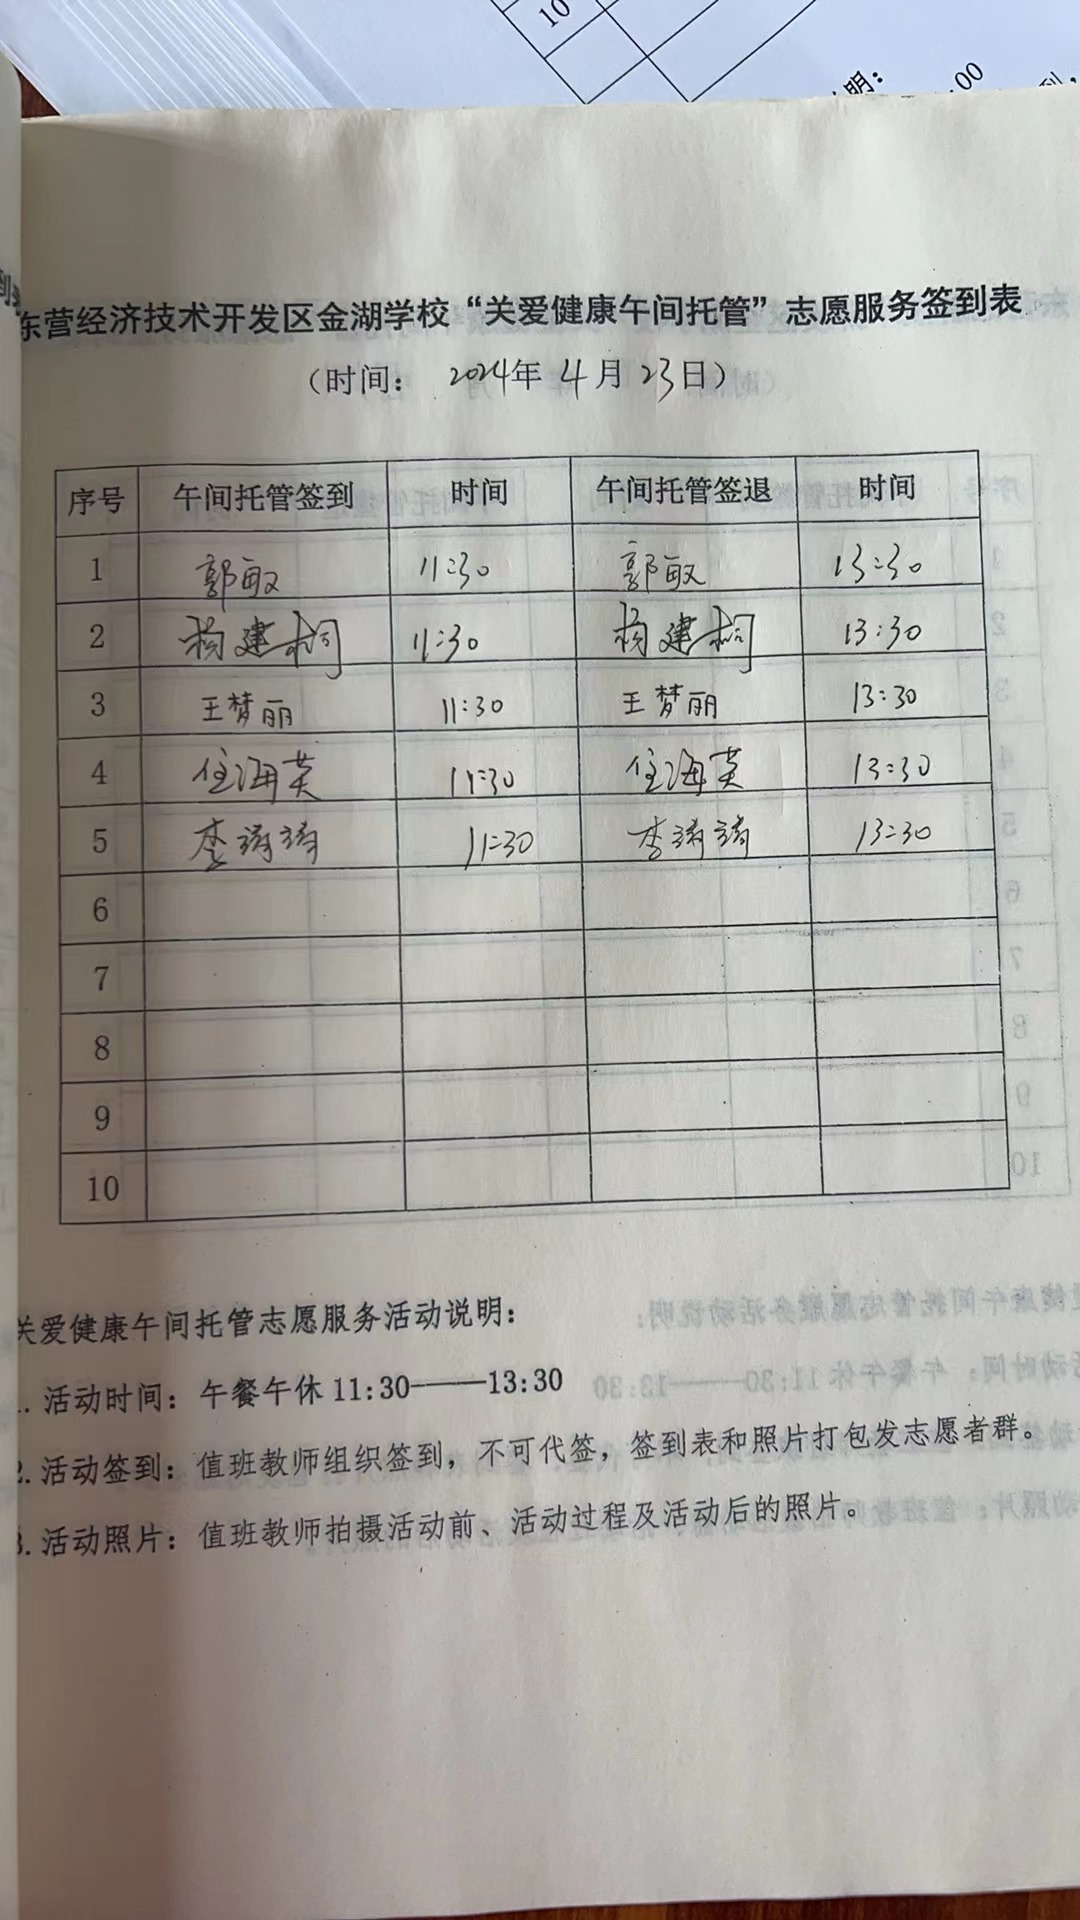 10
明：
.00
到，
东营经济技术开发区金湖学校“关爱健康午间托管”志愿服务签到表
（时间： 2024年 4月 23日）
序号 午间托管签到 时间 午间托管签退 时间
1 郭敏 11:30 郭敏 13:30
2 杨建桐 11:30 杨建桐 13:30
3 王梦丽 11:30 王梦丽 13:30
4 任海英 11:30 任海英 13:30
5 李涛涛 11:30 李涛涛 13:30
6
7
8
9
10
关爱健康午间托管志愿服务活动说明：
1. 活动时间：午餐午休 11:30——13:30
2. 活动签到：值班教师组织签到，不可代签，签到表和照片打包发志愿者群。
3. 活动照片：值班教师拍摄活动前、活动过程及活动后的照片。